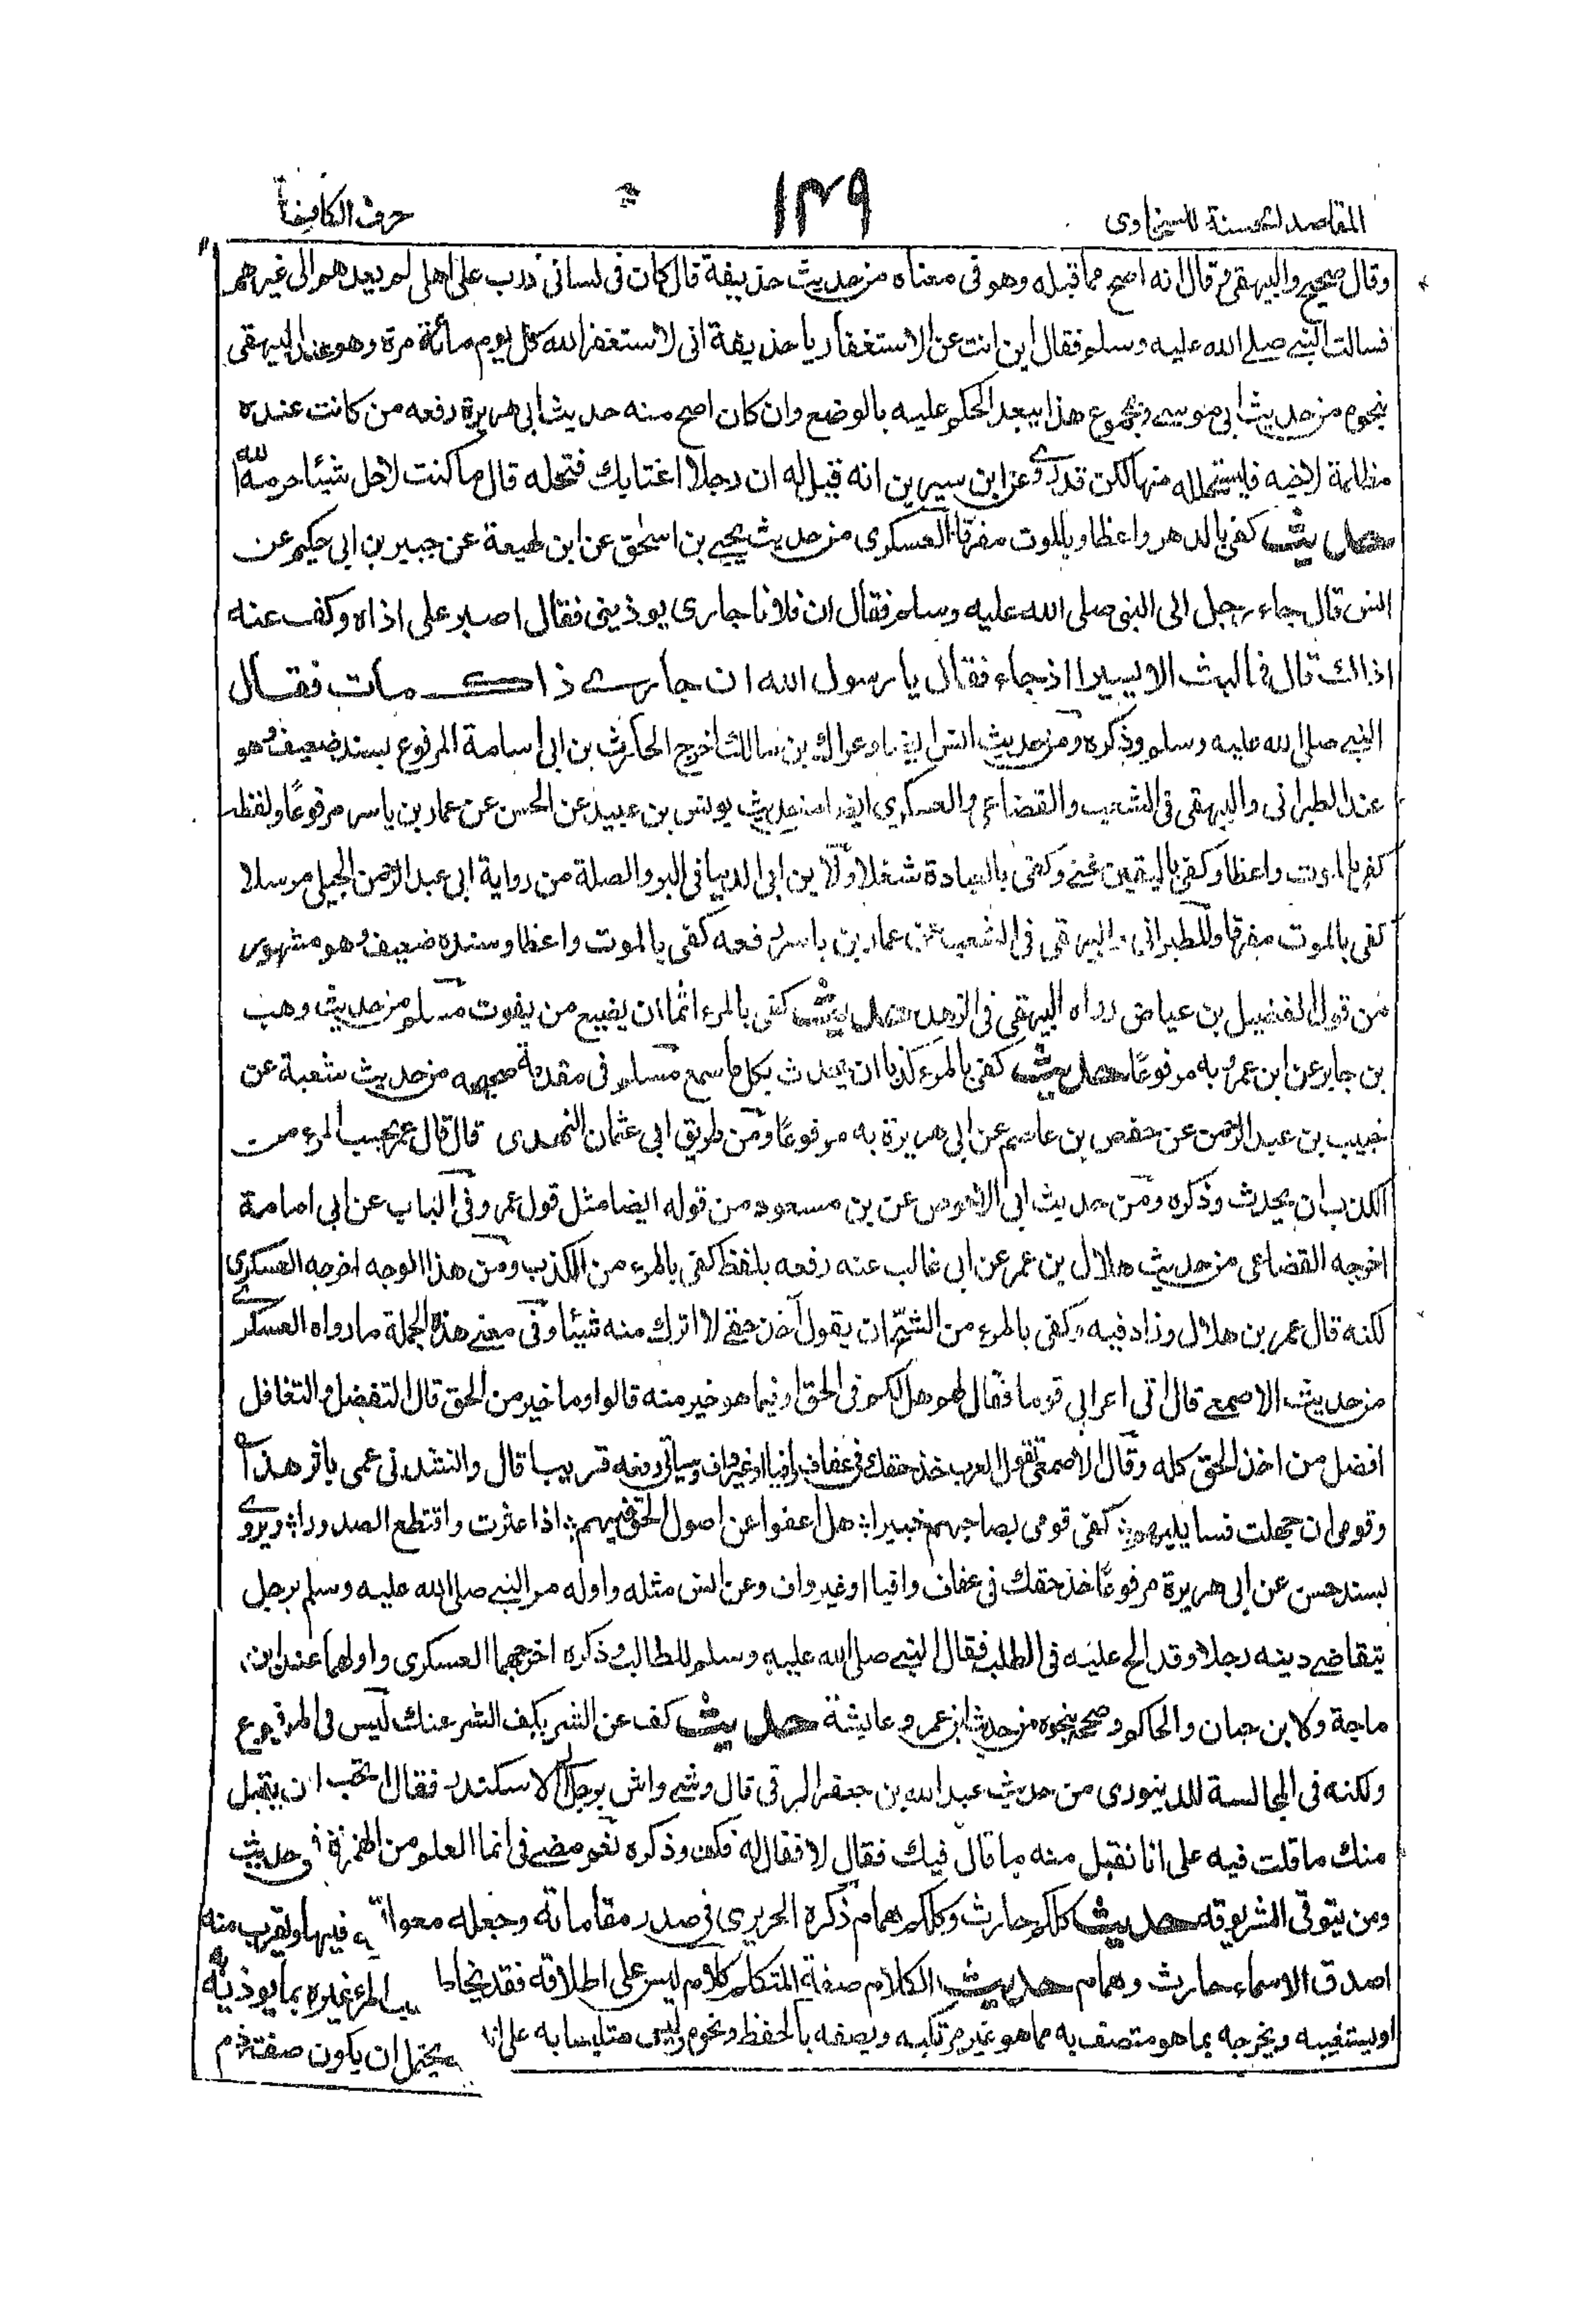 المقاصد الحسنة للسخاوى ١٣٩ حرف الكاف
وقال صحيح والبيهقى وقال انه اصح مما قبله وهو فى معناه من حديث حذيفة قال كان فى لسانى ذرب على اهلى لم يعدهم الى غيرهم
فسالت النبى صلى الله عليه وسلم فقال اين انت عن الاستغفار يا حذيفة انى لاستغفر الله كل يوم مائة مرة وهو عند البيهقى
بنحوه من حديث ابى موسى ومجموع هذا يبعد الحكم عليه بالوضع وان كان اصح منه حديث ابى هريرة رفعه من كانت عنده
مظلمة لاخيه فليستحلله منها لكن قد روى عن ابن سيرين انه قيل له ان رجلا اغتابك فتحله قال ما كنت لاحل شيئا حرمه الله
حديث كفى بالدهر واعظا وبالموت مفرقا العسكرى من حديث يحيى بن اسحق عن ابن لهيعة عن جبير بن ابى حكيم عن
انس قال جاء رجل الى النبى صلى الله عليه وسلم فقال ان فلانا جارى يوذينى فقال اصبر على اذاه وكف عنه
اذاك قال فما لبث الا يسيرا اذ جاء فقال يا رسول الله ان جارى ذاك مات فقال
النبى صلى الله عليه وسلم وذكره ومن حديث انس ايضا وعراك بن مالك اخرج الحارث بن ابى اسامة المرفوع بسند ضعيف وهو
عند الطبرانى والبيهقى فى الشعب والقضاعى والعسكرى ايضا من حديث يونس بن عبيد عن الحسن عن عمار بن ياسر مرفوعًا ولفظه
كفى بالموت واعظا وكفى باليقين غنى وكفى بالعبادة شغلا ولابن ابى الدنيا فى البر والصلة من رواية ابى عبد الرحمن الحبلى مرسلا
كفى بالموت مفرقا وللطبرانى والبيهقى فى الشعب عن عمار بن ياسر رفعه كفى بالموت واعظا وسنده ضعيف وهو مشهور
من قول الفضيل بن عياض رواه البيهقى فى الزهد حديث كفى بالمرء اثما ان يضيع من يقوت مسلم من حديث وهب
بن جابر عن ابن عمرو به مرفوعًا حديث كفى بالمرء كذبا ان يحدث بكل ما سمع مسلم فى مقدمة صحيحه من حديث شعبة عن
خبيب بن عبد الرحمن عن حفص بن عاصم عن ابى هريرة به مرفوعًا ومن طريق ابى عثمان النهدى قال قال عمر بحسب المرء من
الكذب ان يحدث وذكره ومن حديث ابى الاحوص عن بن مسعود من قوله ايضا مثل قول عمر وفى الباب عن ابى امامة
اخرجه القضاعى من حديث هلال بن عمر عن ابى غالب عنه رفعه بلفظ كفى بالمرء من الكذب ومن هذا الوجه اخرجه العسكرى
لكنه قال عمر بن هلال وزاد فيه وكفى بالمرء من الشح ان يقول آخذ حقى لا اترك منه شيئا وفى معنى هذه الجملة ما رواه العسكرى
من حديث الاصمعى قال اتى اعرابى قوما فقال لهم هل لكم فى الحق او فيما هو خير منه قالوا وما خير من الحق قال التفضل والتغافل
افضل من اخذ الحق كله وقال الاصمعى تقول العرب خذ حقك فى عفاف وافيا او غير واف وسياتى رفعه قريبا قال وانشدنى عمى باثر هذا
وقومى ان جهلت فسايليهم كفى قومى بصاحبهم خبيرا هل اعفوا عن اصول الحق فيهم اذا عثرت واقتطع الصدورا ويروى
بسند حسن عن ابى هريرة مرفوعًا خذ حقك فى عفاف وافيا او غير واف وعن انس مثله واوله مر النبى صلى الله عليه وسلم برجل
يتقاضى دينه رجلا وقد الح عليه فى الطلب فقال النبى صلى الله عليه وسلم للطالب وذكره اخرجهما العسكرى واولهما عند ابن
ماجة وكذا ابن حبان والحاكم وصححه بنحوه من حديث ابن عمر وعايشة حديث كف عن الشر يكف الشر عنك ليس فى المرفوع
ولكنه فى المجالسة للدينورى من حديث عبد الله بن جعفر البرقى قال وشى واش برجل الى الاسكندر فقال اتحب ان يقبل
منك ما قلت فيه على انا نقبل منه ما قال فيك فقال لا فقال له فكف وذكره نحو مضى فى انما العلم من حديث
ومن يتوقى الشر يوقه حديث كلكم حارث وكلكم همام ذكره الحريرى فى صدر مقاماته وجعله معولا فيها ويقرب منه
اصدق الاسماء حارث وهمام حديث الكلام صفة المتكلم كلام ليس على اطلاقه فقد يخاطب المرء غيره بما يوذيه
او يستغيبه ويخرجه بما هو متصف به مما هو غير مرتكبه ويصفه بالحفظ ونحوه وليس متلبسا به على انه يحتمل ان يكون صفته ذم